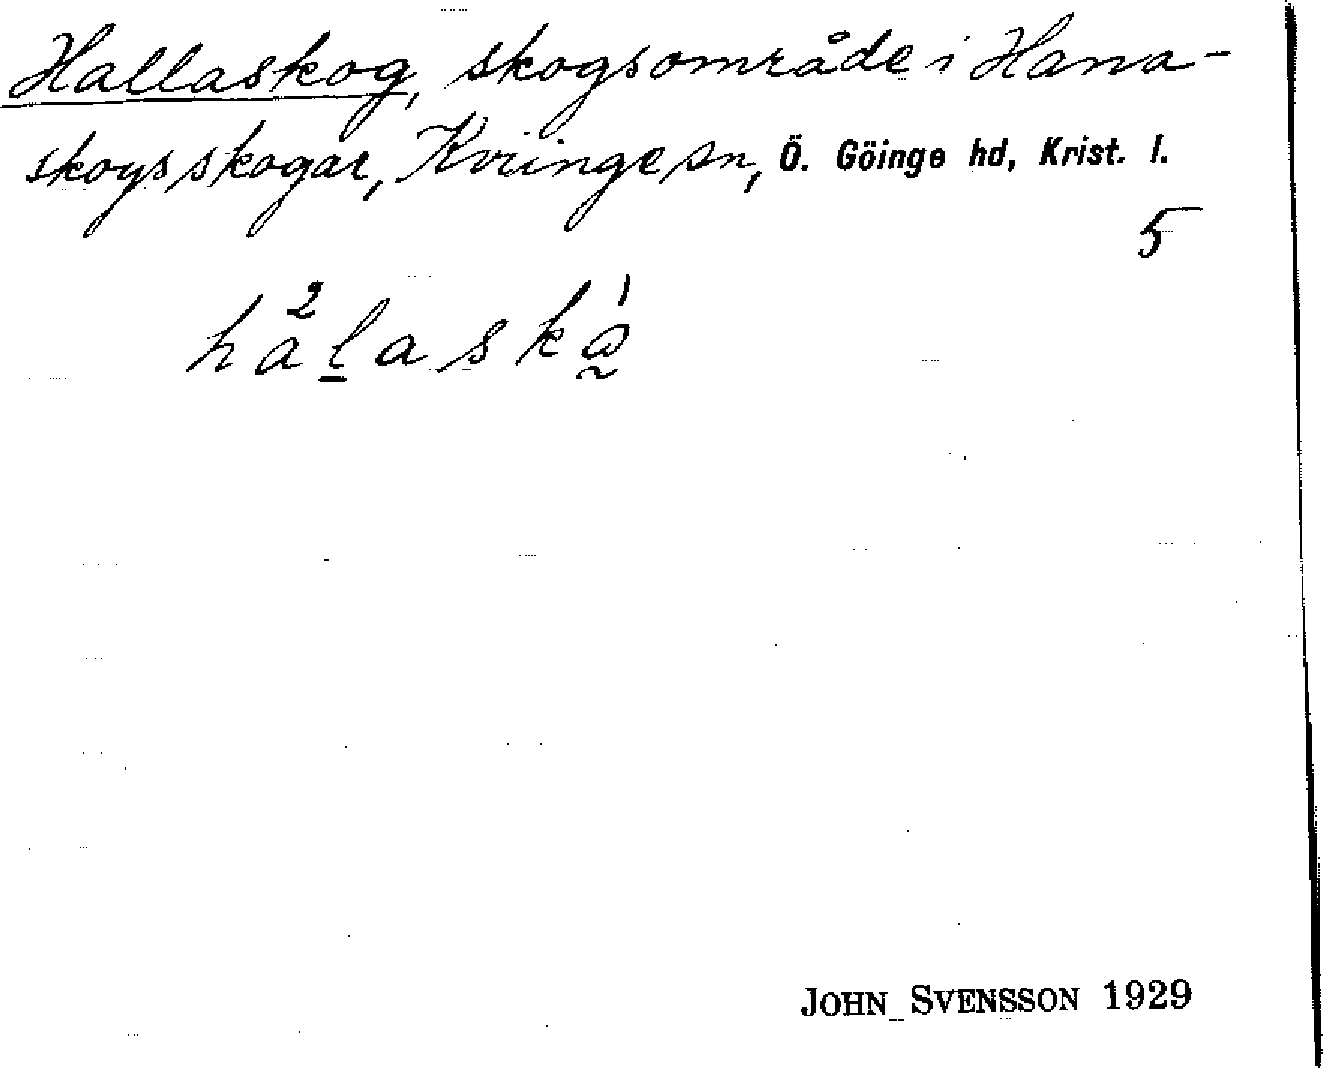 Hallaskog, skogsområde i Hana-
skogsskogar, Kviinge sn, Ö. Göinge hd, Krist. l.
5
JOHN SVENSSON 1929